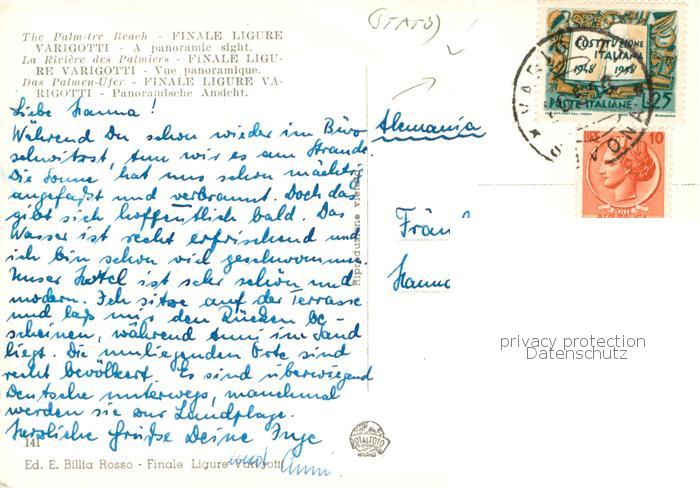 The Palm-tre Beach - FINALE LIGURE
VARIGOTTI - A panoramic sight.
La Rivière des Palmiers - FINALE LIGU-
RE VARIGOTTI - Vue panoramique.
Das Palmen-Ufer - FINALE LIGURE VA-
RIGOTTI - Panoramische Ansicht.
Liebe Hanna!
Während Du schon wieder im Büro
schwitzst, tun wir es am Strande.
Die Sonne hat uns schon mächtig
angefaßt und verbrannt. Doch das
gibt sich hoffentlich bald. Das
Wasser ist recht erfrischend und
ich bin schon viel geschwommen.
Unser Hotel ist sehr schön und
modern. Ich sitze auf der Terrasse
und laß mir den Rücken be-
scheinen, während Anni im Sand
liegt. Die umliegenden Orte sind
recht bevölkert. Es sind überwiegend
Deutsche unterwegs, manchmal
werden sie zur Landplage.
Herzliche Grüße Deine Inge
und Anni.
141
Ed. E. Billia Rosso - Finale Ligure Varigotti
Riproduzione vietata
ROTALFOTO
MILANO
(STATO)
Alemania
Fräu
Hann
COSTITUZIONE
ITALIANA
1948 1958
POSTE ITALIANE L.25
LIRE 10
POSTE
REPUBBLICA
privacy protection
Datenschutz